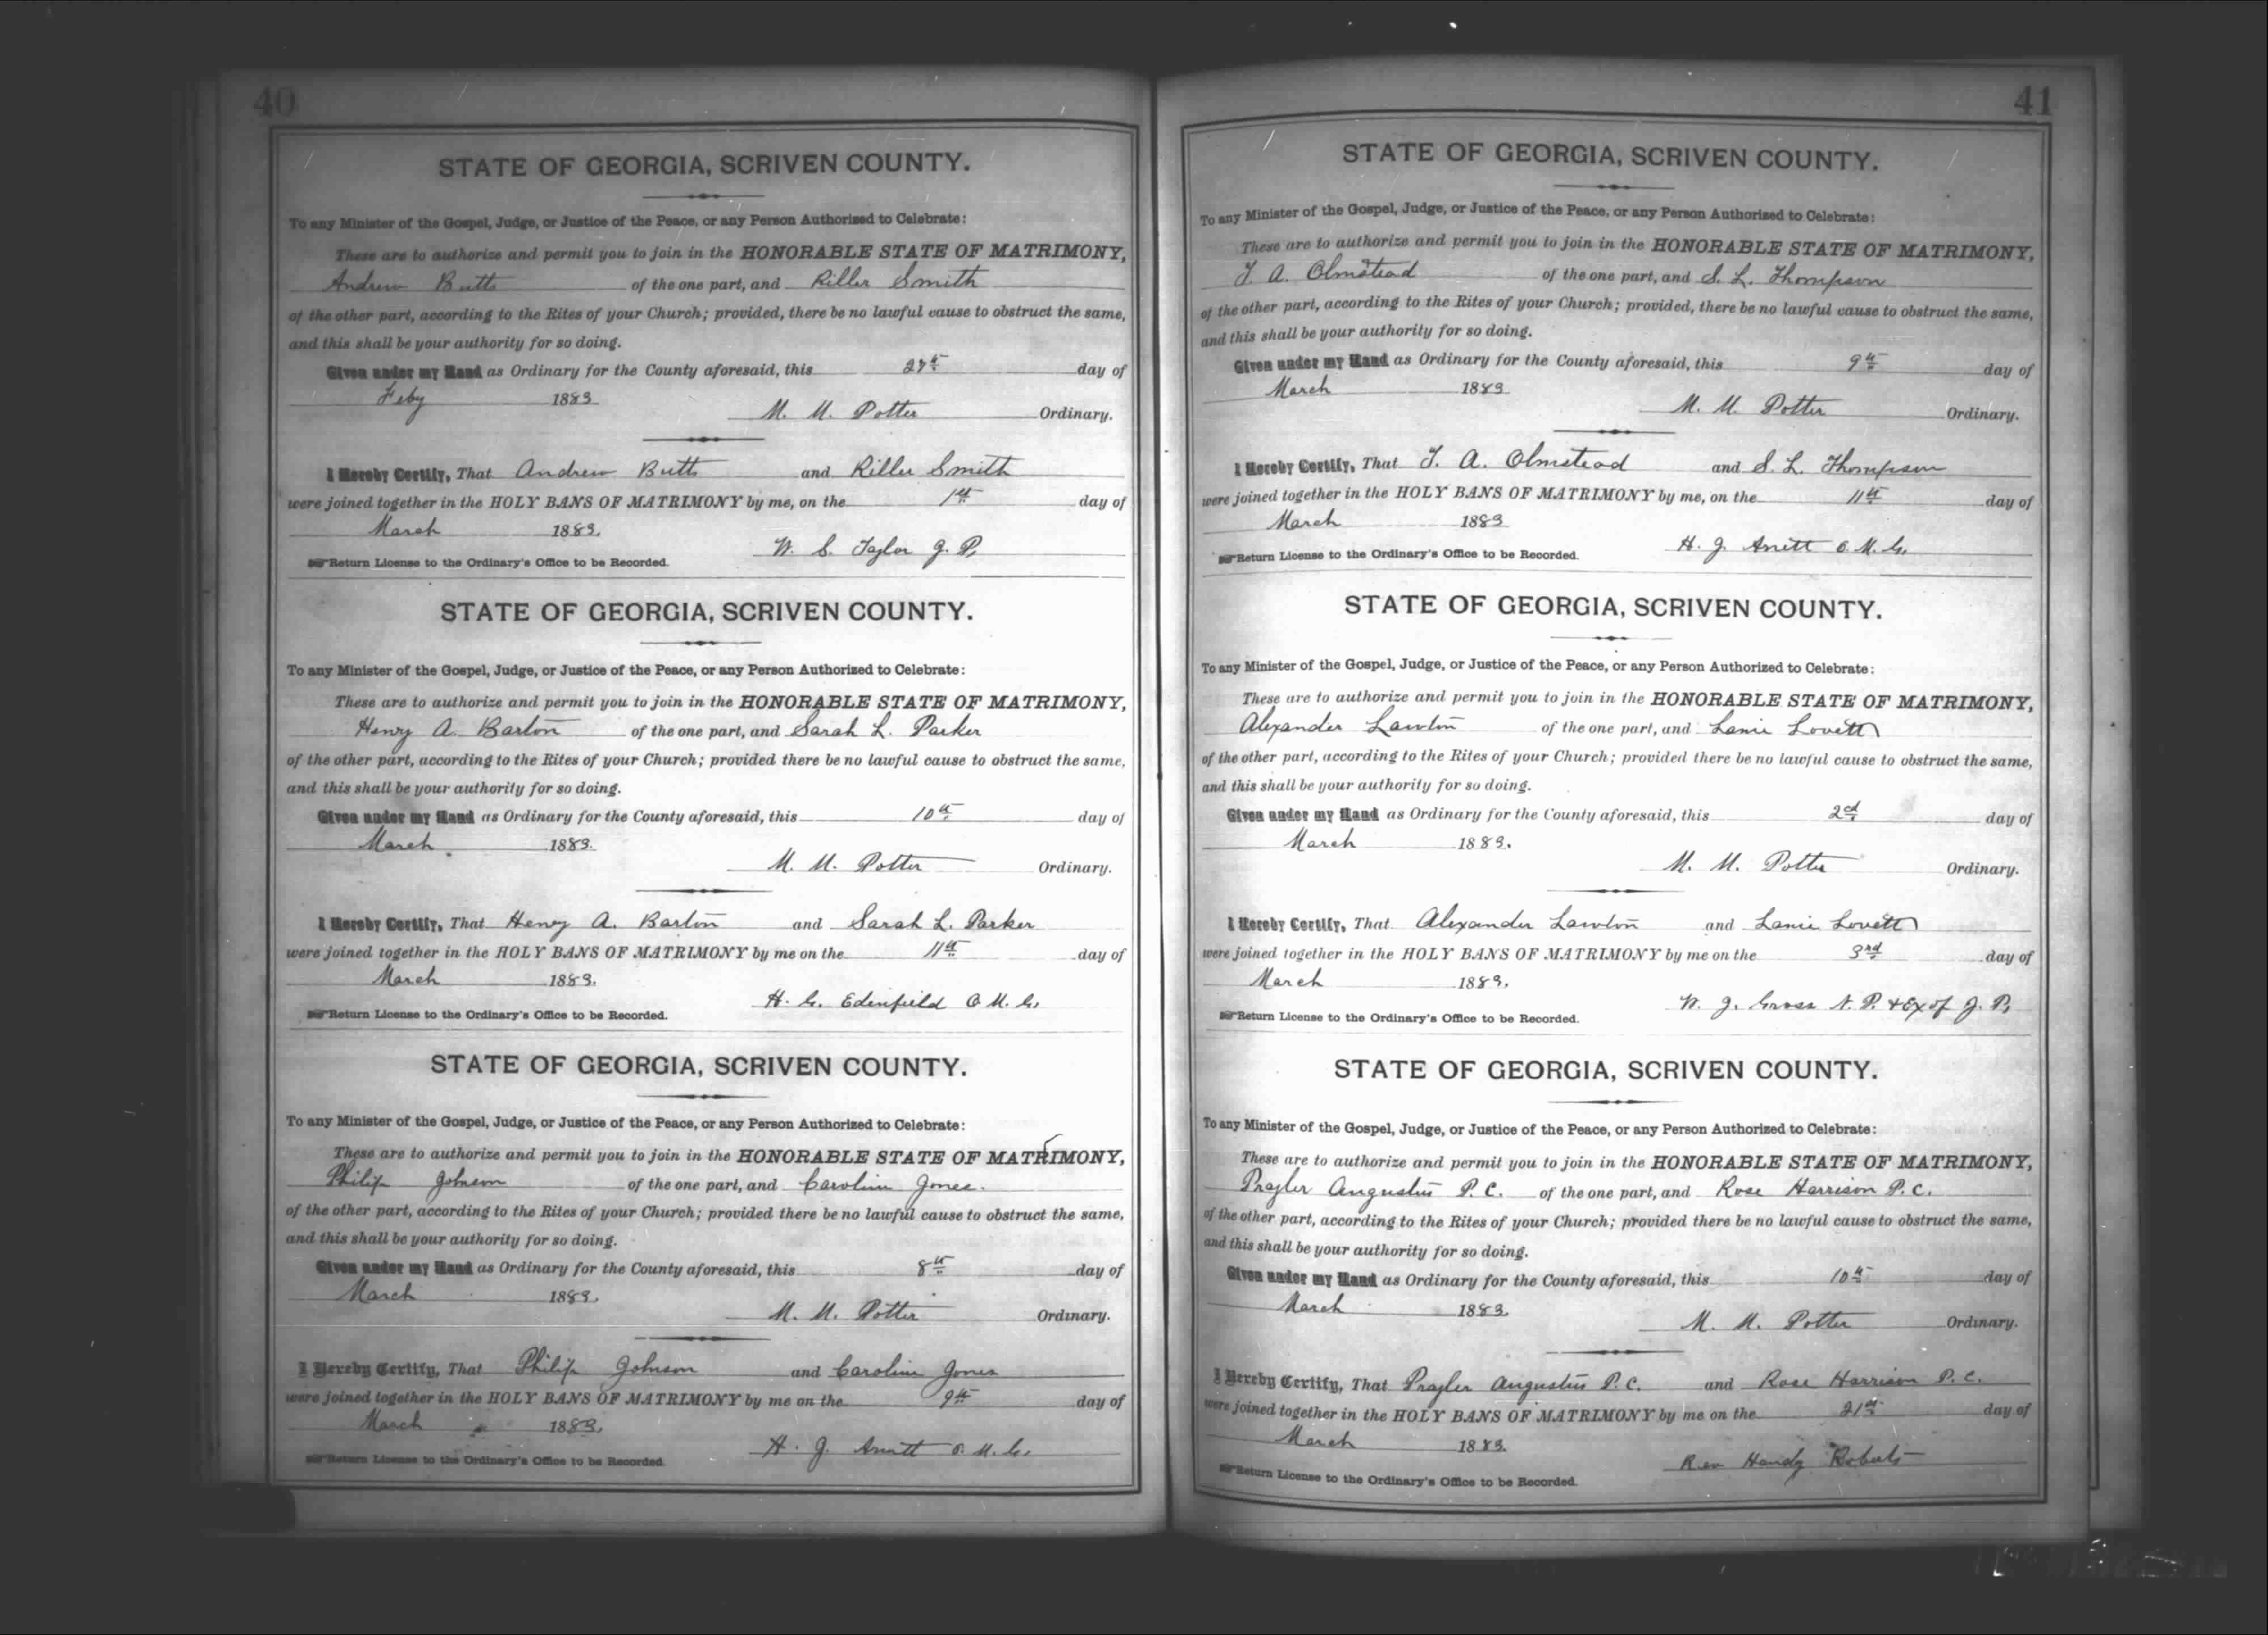 40
STATE OF GEORGIA, SCRIVEN COUNTY.
To any Minister of the Gospel, Judge, or Justice of the Peace, or any Person Authorized to Celebrate:
These are to authorize and permit you to join in the HONORABLE STATE OF MATRIMONY,
Andrew Butts of the one part, and Riller Smith
of the other part, according to the Rites of your Church; provided, there be no lawful cause to obstruct the same,
and this shall be your authority for so doing.
Given under my Hand as Ordinary for the County aforesaid, this 27th day of
Feby 1883
M. M. Potter Ordinary.
I Hereby Certify, That Andrew Butts and Riller Smith
were joined together in the HOLY BANS OF MATRIMONY by me, on the 1st day of
March 1883.
W. S. Taylor J. P.
Return License to the Ordinary's Office to be Recorded.
STATE OF GEORGIA, SCRIVEN COUNTY.
To any Minister of the Gospel, Judge, or Justice of the Peace, or any Person Authorized to Celebrate:
These are to authorize and permit you to join in the HONORABLE STATE OF MATRIMONY,
Henry A. Barton of the one part, and Sarah L. Parker
of the other part, according to the Rites of your Church; provided there be no lawful cause to obstruct the same,
and this shall be your authority for so doing.
Given under my Hand as Ordinary for the County aforesaid, this 10th day of
March 1883.
M. M. Potter Ordinary.
I Hereby Certify, That Henry A. Barton and Sarah L. Parker
were joined together in the HOLY BANS OF MATRIMONY by me on the 11th day of
March 1883.
H. G. Edenfield O. M. G.
Return License to the Ordinary's Office to be Recorded.
STATE OF GEORGIA, SCRIVEN COUNTY.
To any Minister of the Gospel, Judge, or Justice of the Peace, or any Person Authorized to Celebrate:
These are to authorize and permit you to join in the HONORABLE STATE OF MATRIMONY,
Philip Johnson of the one part, and Caroline Jones.
of the other part, according to the Rites of your Church; provided there be no lawful cause to obstruct the same,
and this shall be your authority for so doing.
Given under my Hand as Ordinary for the County aforesaid, this 8th day of
March 1883.
M. M. Potter Ordinary.
I Hereby Certify, That Philip Johnson and Caroline Jones
were joined together in the HOLY BANS OF MATRIMONY by me on the 9th day of
March 1883.
H. J. Arnett O. M. G.
Return License to the Ordinary's Office to be Recorded.
41
STATE OF GEORGIA, SCRIVEN COUNTY.
To any Minister of the Gospel, Judge, or Justice of the Peace, or any Person Authorized to Celebrate:
These are to authorize and permit you to join in the HONORABLE STATE OF MATRIMONY,
T. A. Olmstead of the one part, and S. L. Thompson
of the other part, according to the Rites of your Church; provided, there be no lawful cause to obstruct the same,
and this shall be your authority for so doing.
Given under my Hand as Ordinary for the County aforesaid, this 9th day of
March 1883
M. M. Potter Ordinary.
I Hereby Certify, That T. A. Olmstead and S. L. Thompson
were joined together in the HOLY BANS OF MATRIMONY by me, on the 11th day of
March 1883
H. J. Arnett O. M. G.
Return License to the Ordinary's Office to be Recorded.
STATE OF GEORGIA, SCRIVEN COUNTY.
To any Minister of the Gospel, Judge, or Justice of the Peace, or any Person Authorized to Celebrate:
These are to authorize and permit you to join in the HONORABLE STATE OF MATRIMONY,
Alexander Lawton of the one part, and Lanie Lovett
of the other part, according to the Rites of your Church; provided there be no lawful cause to obstruct the same,
and this shall be your authority for so doing.
Given under my Hand as Ordinary for the County aforesaid, this 2nd day of
March 1883.
M. M. Potter Ordinary.
I Hereby Certify, That Alexander Lawton and Lanie Lovett
were joined together in the HOLY BANS OF MATRIMONY by me on the 3rd day of
March 1883.
W. J. Gross N. P. & Ex of J. P.
Return License to the Ordinary's Office to be Recorded.
STATE OF GEORGIA, SCRIVEN COUNTY.
To any Minister of the Gospel, Judge, or Justice of the Peace, or any Person Authorized to Celebrate:
These are to authorize and permit you to join in the HONORABLE STATE OF MATRIMONY,
Augustus P. C. of the one part, and Rose Harrison P. C.
of the other part, according to the Rites of your Church; provided there be no lawful cause to obstruct the same,
and this shall be your authority for so doing.
Given under my Hand as Ordinary for the County aforesaid, this 10th day of
March 1883.
M. M. Potter Ordinary.
I Hereby Certify, That Augustus P. C. and Rose Harrison P. C.
were joined together in the HOLY BANS OF MATRIMONY by me on the 21st day of
March 1883.
Rev Handy Roberts
Return License to the Ordinary's Office to be Recorded.